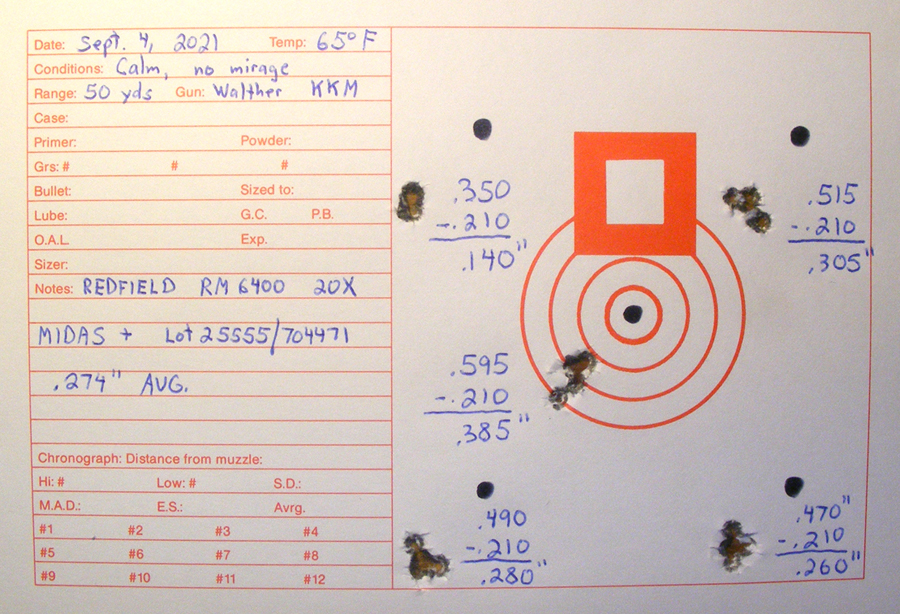 Date: Sept. 4, 2021 Temp: 65° F
Conditions: Calm, no mirage
Range: 50 yds Gun: Walther KKM
Case:
Primer: Powder:
Grs: # # #
Bullet: Sized to:
Lube: G.C. P.B.
O.A.L. Exp.
Sizer:
Notes: REDFIELD RM 6400 20X
MIDAS + Lot 25555/704471
.274" AVG.
Chronograph: Distance from muzzle:
Hi: # Low: # S.D.:
M.A.D.: E.S.: Avrg.
#1 #2 #3 #4
#5 #6 #7 #8
#9 #10 #11 #12
.350
-.210
.140"
.515
-.210
.305"
.595
-.210
.385"
.490
-.210
.280"
.470"
-.210
.260"